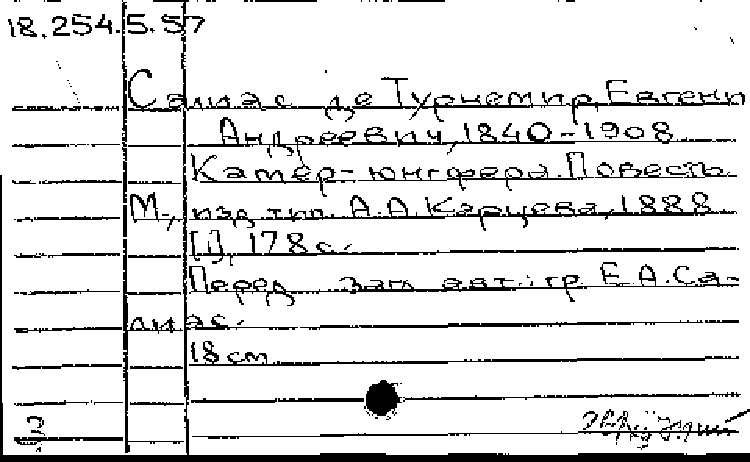 18.254.5.57
Салиас де Турнемир, Евгени
Андреевич, 1840-1908
Камер-юнгфера. Повесть
М., изд. тип. А.А. Карцева, 1888
[1], 178 с.
Перед загл. авт.: гр. Е.А. Са-
лиас.
18 см
3